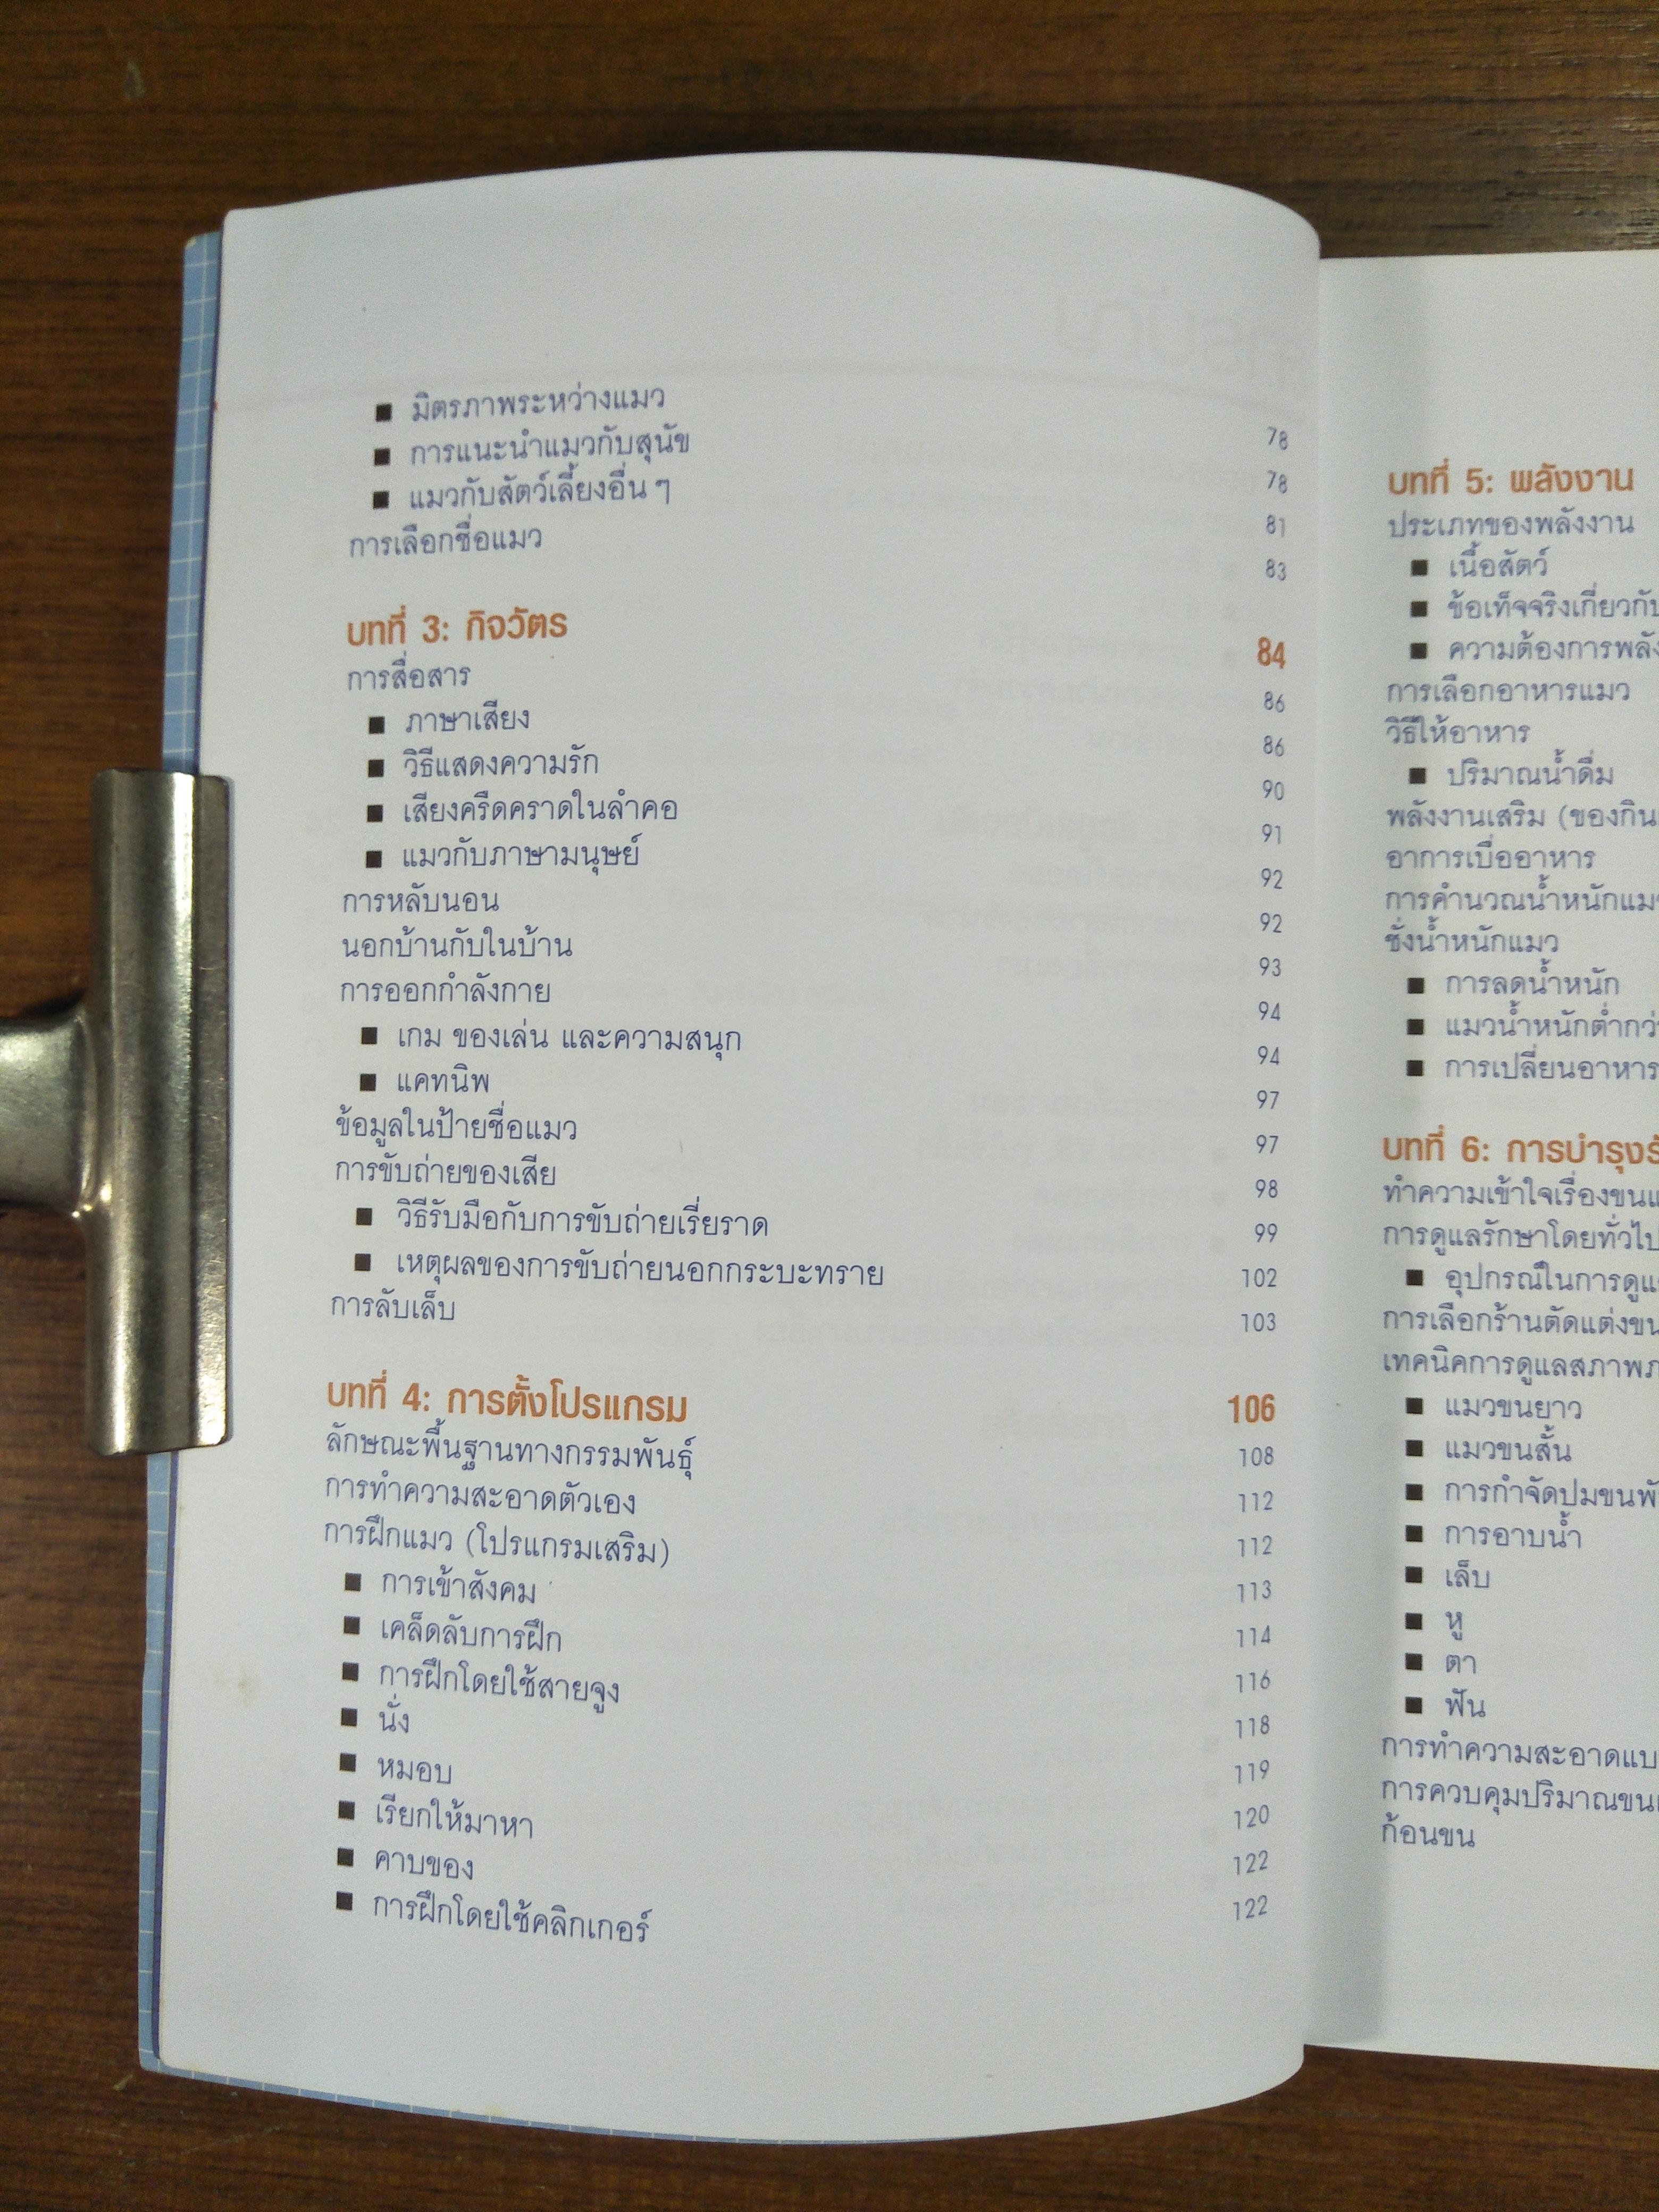 ■ มิตรภาพระหว่างแมว 78
■ การแนะนำแมวกับสุนัข 78
■ แมวกับสัตว์เลี้ยงอื่น ๆ 81
การเลือกชื่อแมว 83
บทที่ 3: กิจวัตร 84
การสื่อสาร 86
■ ภาษาเสียง 86
■ วิธีแสดงความรัก 90
■ เสียงครืดคราดในลำคอ 91
■ แมวกับภาษามนุษย์ 92
การหลับนอน 92
นอกบ้านกับในบ้าน 93
การออกกำลังกาย 94
■ เกม ของเล่น และความสนุก 94
■ แคทนิพ 97
ข้อมูลในป้ายชื่อแมว 97
การขับถ่ายของเสีย 98
■ วิธีรับมือกับการขับถ่ายเรี่ยราด 99
■ เหตุผลของการขับถ่ายนอกกระบะทราย 102
การลับเล็บ 103
บทที่ 4: การตั้งโปรแกรม 106
ลักษณะพื้นฐานทางกรรมพันธุ์ 108
การทำความสะอาดตัวเอง 112
การฝึกแมว (โปรแกรมเสริม) 112
■ การเข้าสังคม 113
■ เคล็ดลับการฝึก 114
■ การฝึกโดยใช้สายจูง 116
■ นั่ง 118
■ หมอบ 119
■ เรียกให้มาหา 120
■ คาบของ 122
■ การฝึกโดยใช้คลิกเกอร์ 122
บทที่ 5: พลังงาน
ประเภทของพลังงาน
■ เนื้อสัตว์
■ ข้อเท็จจริงเกี่ยวกับ
■ ความต้องการ
การเลือกอาหารแมว
วิธีให้อาหาร
■ ปริมาณน้ำดื่ม
พลังงานเสริม (ของกิน
อาการเบื่ออาหาร
การคำนวณน้ำหนัก
ชั่งน้ำหนักแมว
■ การลดน้ำหนัก
■ แมวน้ำหนักต่ำ
■ การเปลี่ยนอาหาร
บทที่ 6: การบำรุง
ทำความเข้าใจเรื่องขน
การดูแลรักษาโดยทั่วไป
■ อุปกรณ์ในการ
การเลือกร้านตัดแต่งขน
เทคนิคการดูแลสภาพ
■ แมวขนยาว
■ แมวขนสั้น
■ การกำจัดปมขน
■ การอาบน้ำ
■ เล็บ
■ หู
■ ตา
■ ฟัน
การทำความสะอาด
การควบคุมปริมาณขน
ก้อนขน